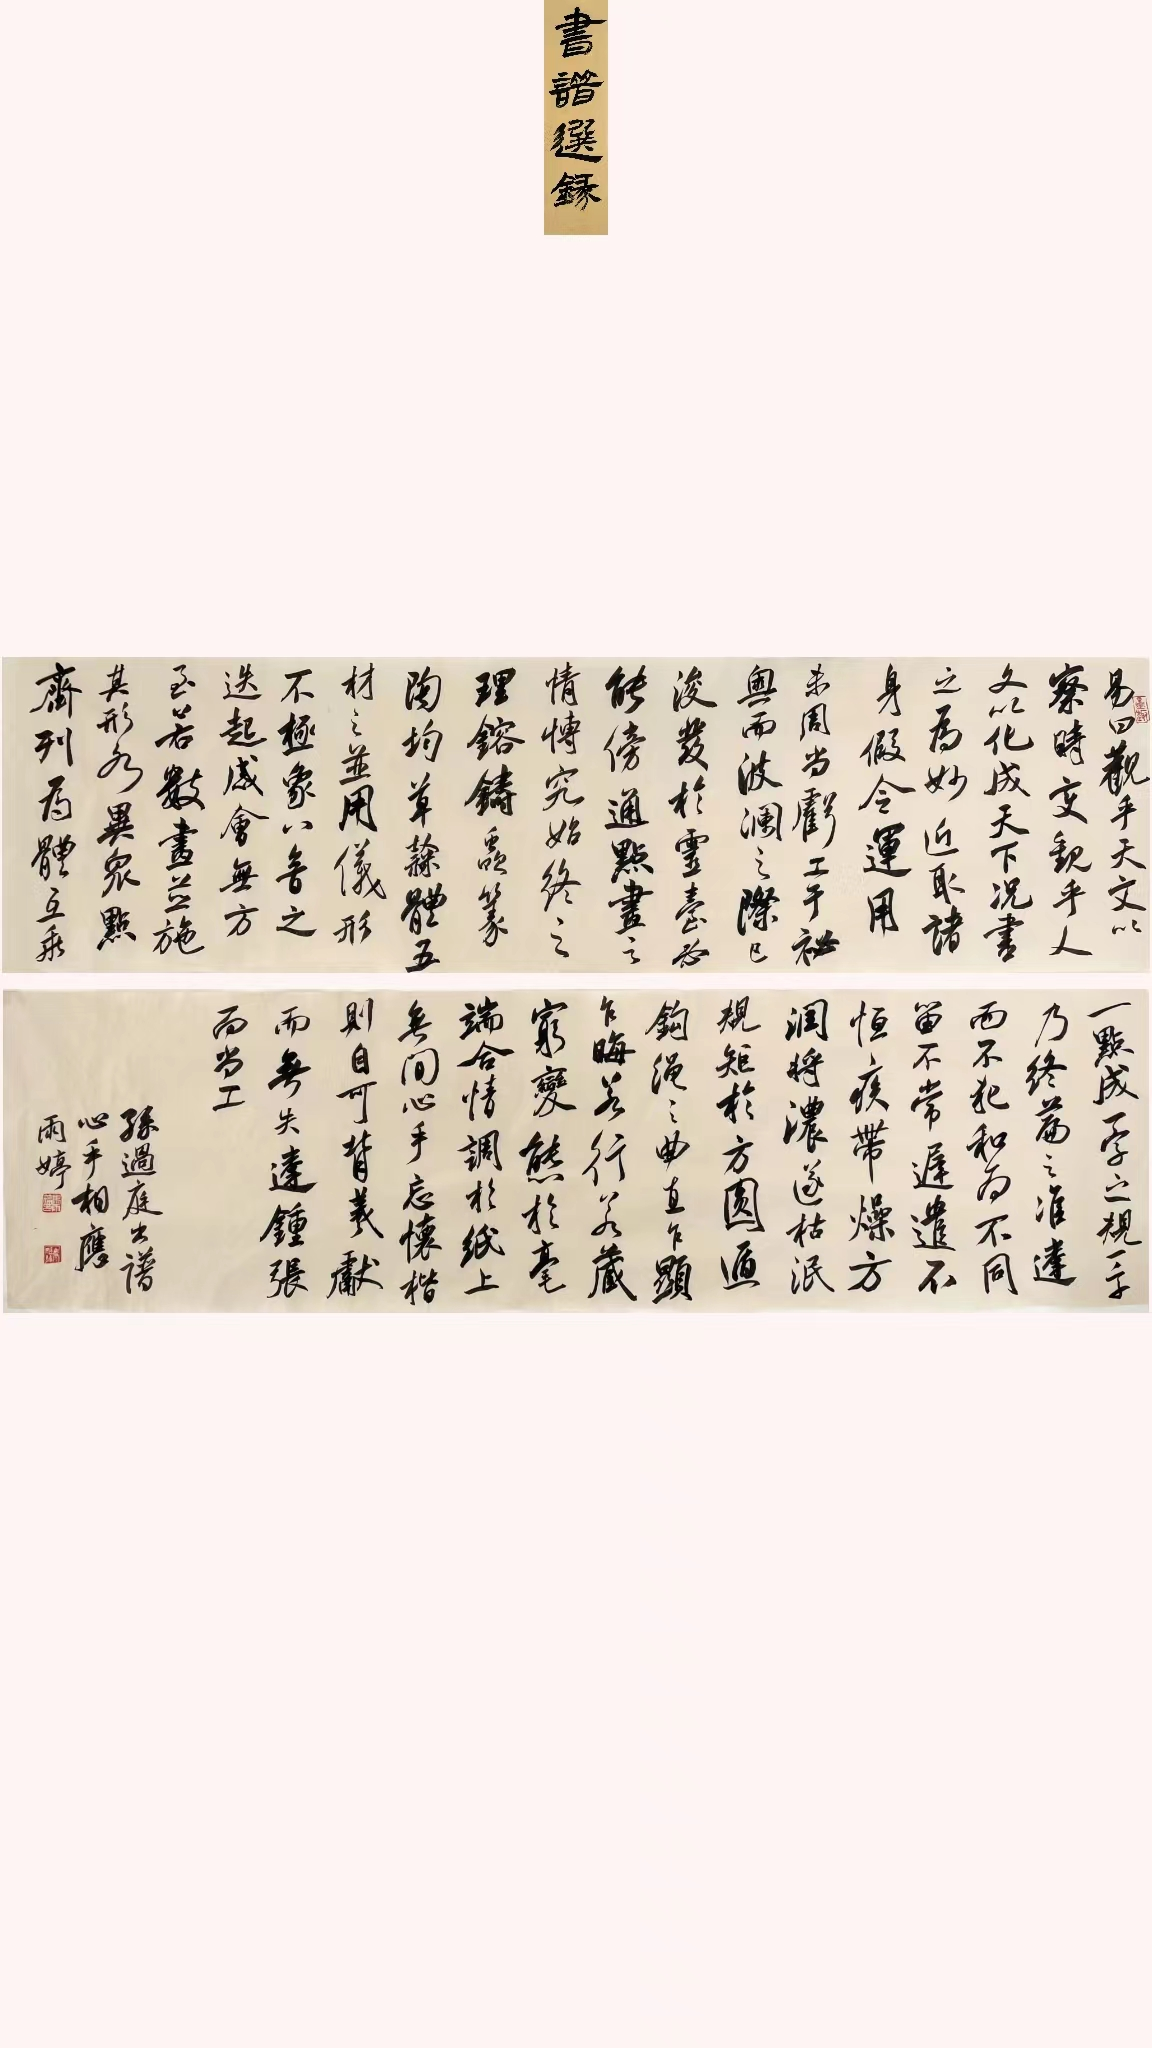 書譜選録
易曰觀乎天文以
察時變觀乎人
文以化成天下况書
之為妙近取諸
身假令運用
未周尚虧工于祕
奧而波瀾之際已
浚發於靈臺必
能傍通點畫之
情博究始終之
理鎔鑄蟲篆
陶均草隸體五
材之並用儀形
不極象八音之
迭起感會無方
至若數畫並施
其形各異衆點
齊列為體互乖
一點成字之規一字
乃終篇之准違
而不犯和而不同
留不常遲遣不
恒疾帶燥方
潤將濃遂枯泯
規矩於方圓遁
鉤繩之曲直乍顯
乍晦若行若藏
窮變態於毫
端合情調於紙上
無間心手忘懷楷
則自可背羲獻
而無失違鍾張
而尚工
孫過庭書譜
心手相應
雨婷